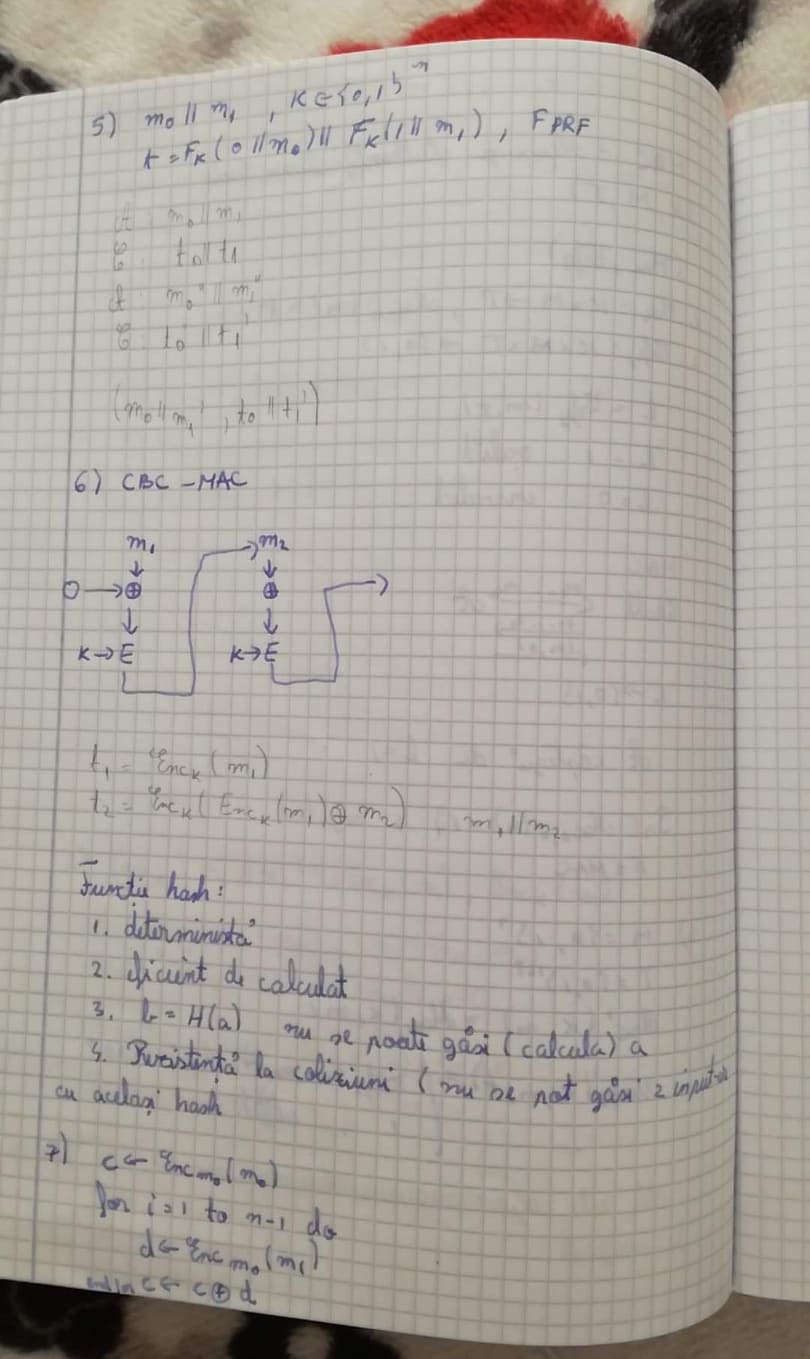 5) m₀ || m₁ , K ∈ {0,1}ⁿ
t = Fₖ(0 || m₀) || Fₖ(1 || m₁) , F PRF
A m₀ || m₁
C t₀ || t₁
A m₀' || m₁'
C t₀' || t₁'
(m₀ || m₁' , t₀ || t₁')
6) CBC - MAC
m₁ → m₂
↓ ↓
0 → ⊕ ⊕ →
↓ ↓
K → E K → E
t₁ = Encₖ(m₁)
t₂ = Encₖ(Encₖ(m₁) ⊕ m₂) m₁ || m₂
Funcție hash:
1. deterministă
2. eficient de calculat
3. b = H(a) nu se poate găsi (calcula) a
4. Rezistență la coliziuni (nu se pot găsi 2 input-
cu același hash
7) c ← Enc m₀ (m₀)
for i = 1 to n-1 do
d ← Enc m₀ (m₁)
c ← c ⊕ d